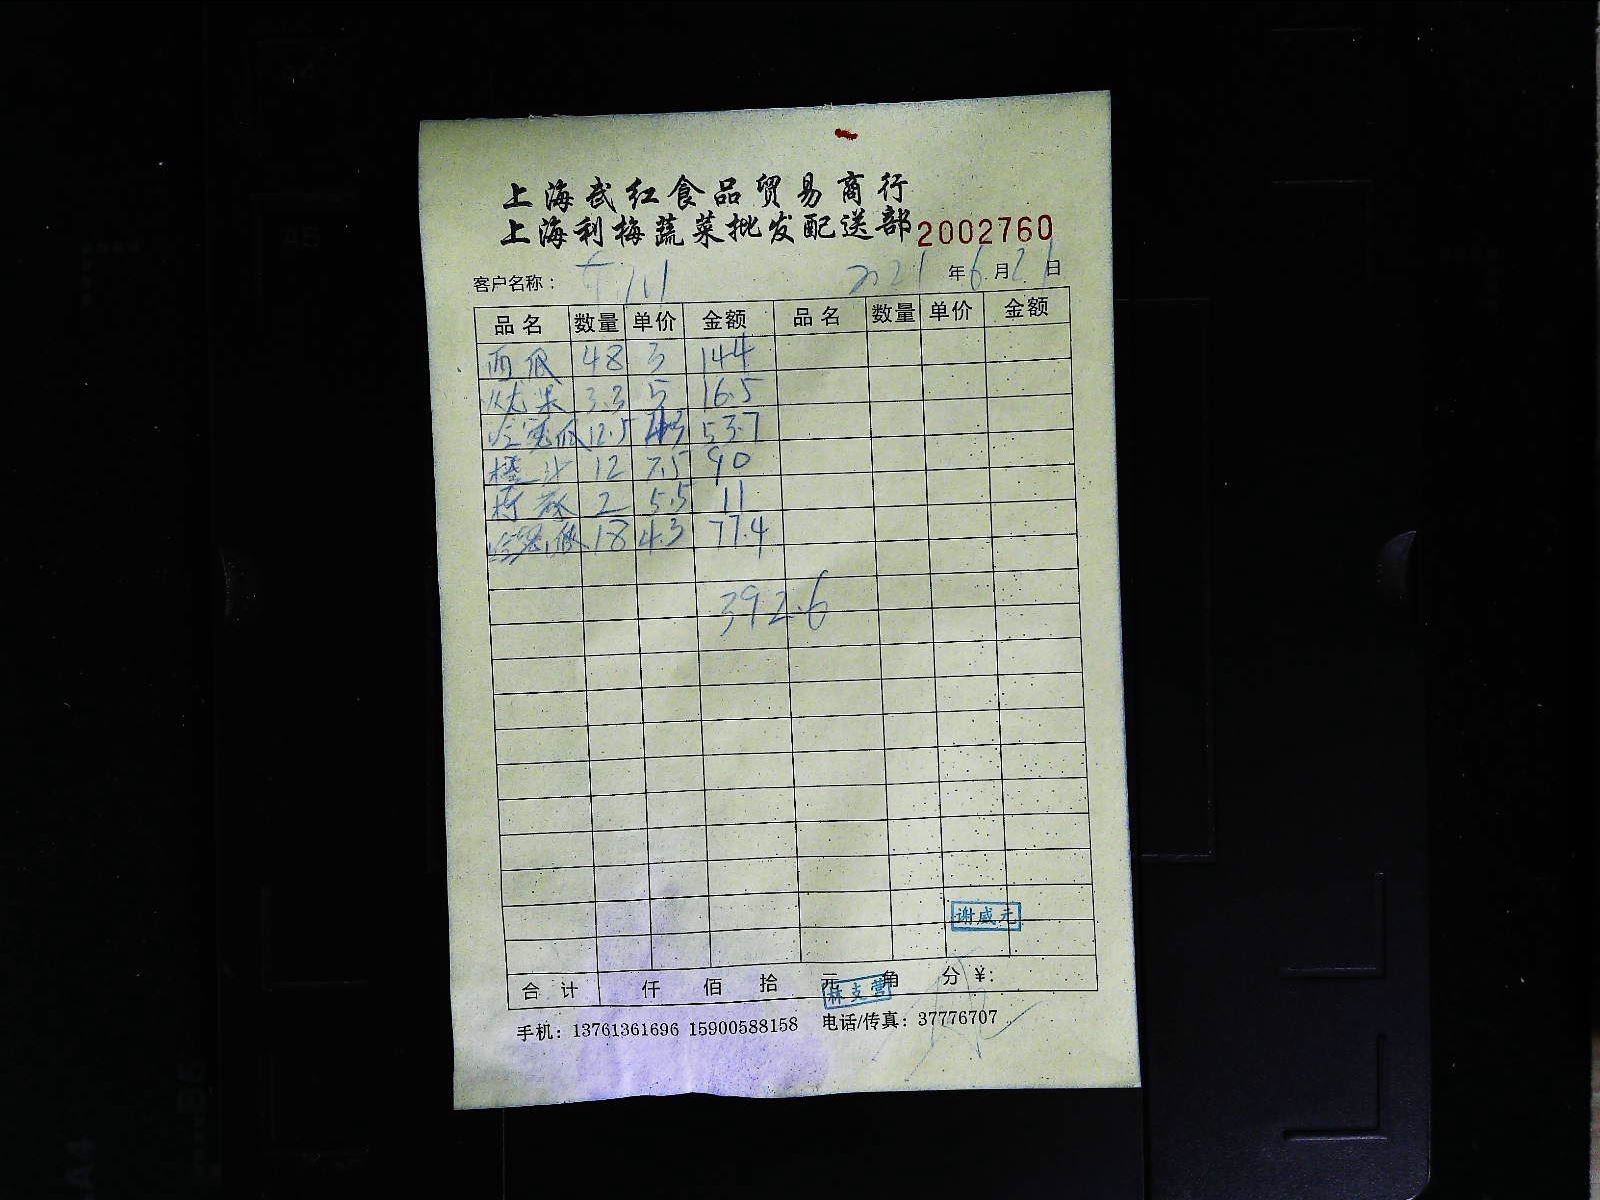 上海武红食品贸易商行
上海利梅蔬菜批发配送部 2002760
客户名称： 2021年6月21日
品名 数量 单价 金额 品名 数量 单价 金额
西 48 3 144
3.3 5 16.5
12.5 4.3 53.7
橙汁 12 7.5 90
2 5.5 11
18 4.3 77.4
392.6
谢威元
合计 仟 佰 拾 元 角 分 ¥:
林支营
手机: 13761361696 15900588158 电话/传真: 37776707